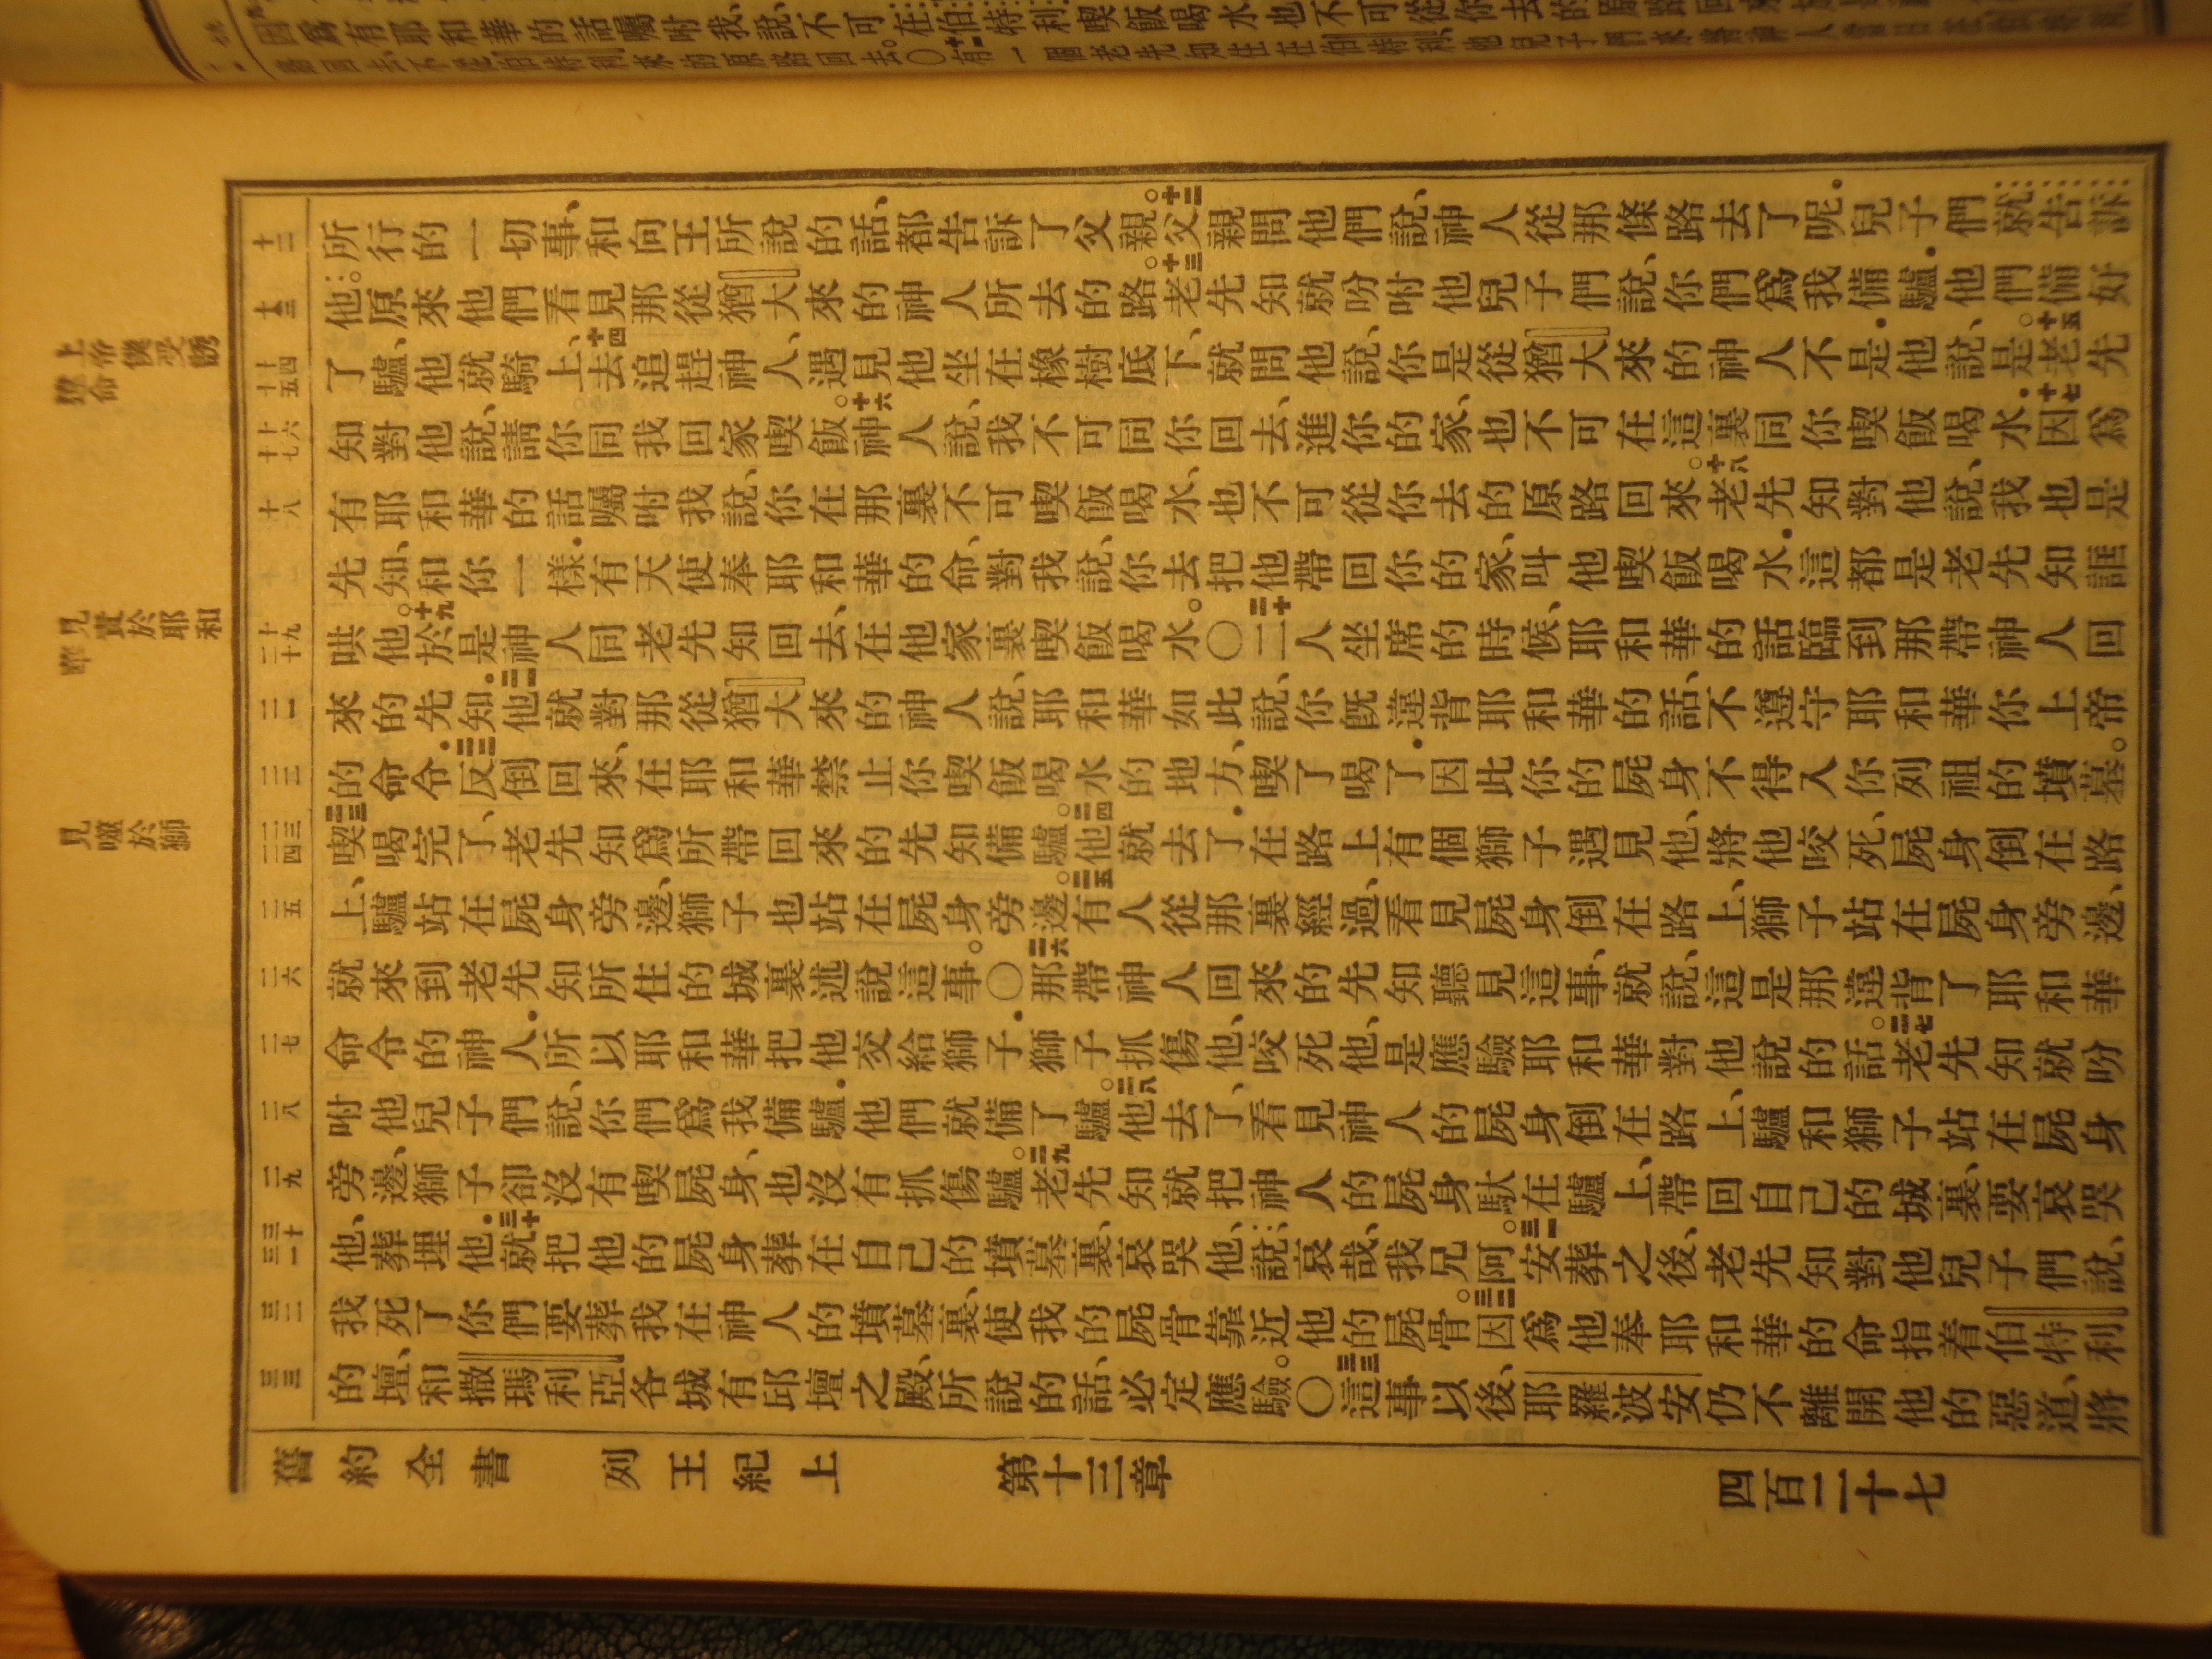 所行的一切事、和向王所說的話、都告訴了父親。十二父親問他們說、神人從那條路去了呢．兒子們就告訴
他。原來他們看見那從猶大來的神人所去的路。十三老先知就吩咐他兒子們說、你們爲我備驢．他們備好
了驢、他就騎上、十四去追趕神人、遇見他坐在橡樹底下、就問他說、你是從猶大來的神人不是．他說、是。十五老先
知對他說、請你同我回家喫飯。十六神人說、我不可同你回去、進你的家、也不可在這裏同你喫飯喝水．十七因爲
有耶和華的話囑咐我說、你在那裏不可喫飯喝水、也不可從你去的原路回來。十八老先知對他說、我也是
先知、和你一樣．有天使奉耶和華的命、對我說、你去把他帶回你的家、叫他喫飯喝水．這都是老先知誆
哄他。十九於是神人同老先知回去、在他家裏喫飯喝水。〇二十二人坐席的時候、耶和華的話臨到那帶神人回
來的先知．二一他就對那從猶大來的神人說、耶和華如此說、你既違背耶和華的話、不遵守耶和華你上帝
的命令．二二反倒回來、在耶和華禁止你喫飯喝水的地方、喫了喝了．因此你的屍身不得入你列祖的墳墓。
二三喫喝完了、老先知爲所帶回來的先知備驢。二四他就去了．在路上有個獅子遇見他、將他咬死、屍身倒在路
上、驢站在屍身旁邊、獅子也站在屍身旁邊。二五有人從那裏經過、看見屍身倒在路上、獅子站在屍身旁邊、
就來到老先知所住的城裏述說這事。〇二六那帶神人回來的先知聽見這事、就說、這是那違背了耶和華
命令的神人．所以耶和華把他交給獅子．獅子抓傷他、咬死他、是應驗耶和華對他說的話。二七老先知就吩
咐他兒子們說、你們爲我備驢．他們就備了驢。二八他去了、看見神人的屍身倒在路上、驢和獅子站在屍身
旁邊、獅子卻沒有喫屍身、也沒有抓傷驢。二九老先知就把神人的屍身馱在驢上、帶回自己的城裏、要哀哭
他、葬埋他．三十就把他的屍身葬在自己的墳墓裏、哀哭他、說、哀哉、我兄阿。三一安葬之後、老先知對他兒子們說、
我死了你們要葬我在神人的墳墓裏、使我的屍骨靠近他的屍骨。三二因爲他奉耶和華的命指着伯特利
的壇、和撒瑪利亞各城有邱壇之殿、所說的話、必定應驗。〇三三這事以後、耶羅波安仍不離開他的惡道、將
上帝僕受誘違命
見責於耶和華
見噬於獅
十二
十三
十四 十五
十六 十七
十八
十九 二十
二一
二二
二三 二四
二五
二六
二七
二八
二九
三十 三一
三二
三三
舊約全書 列王紀上 第十三章 四百二十七